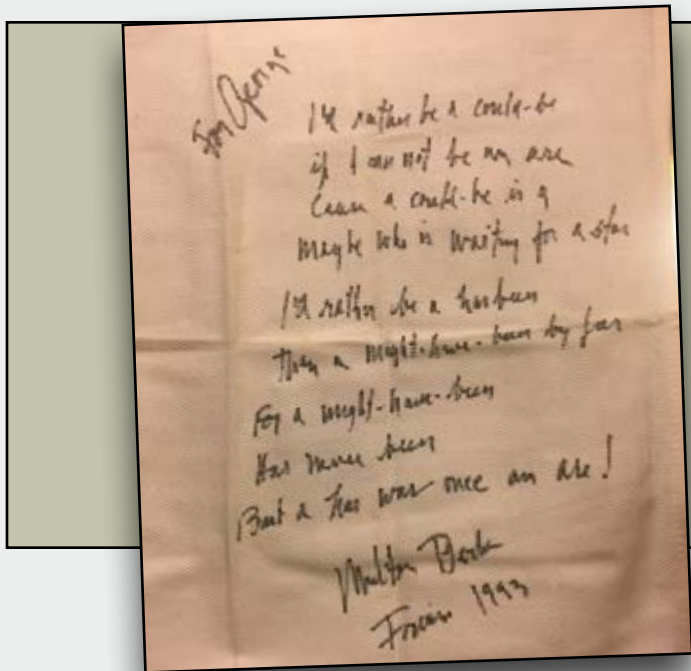 For George
I'd rather be a could-be
if I can not be an are
Cause a could-be is a
maybe who is waiting for a star
I'd rather be a has been
Than a might-have-been by far
For a might-have-been
Has never been
But a has was once an are!
Milton Berle
1993